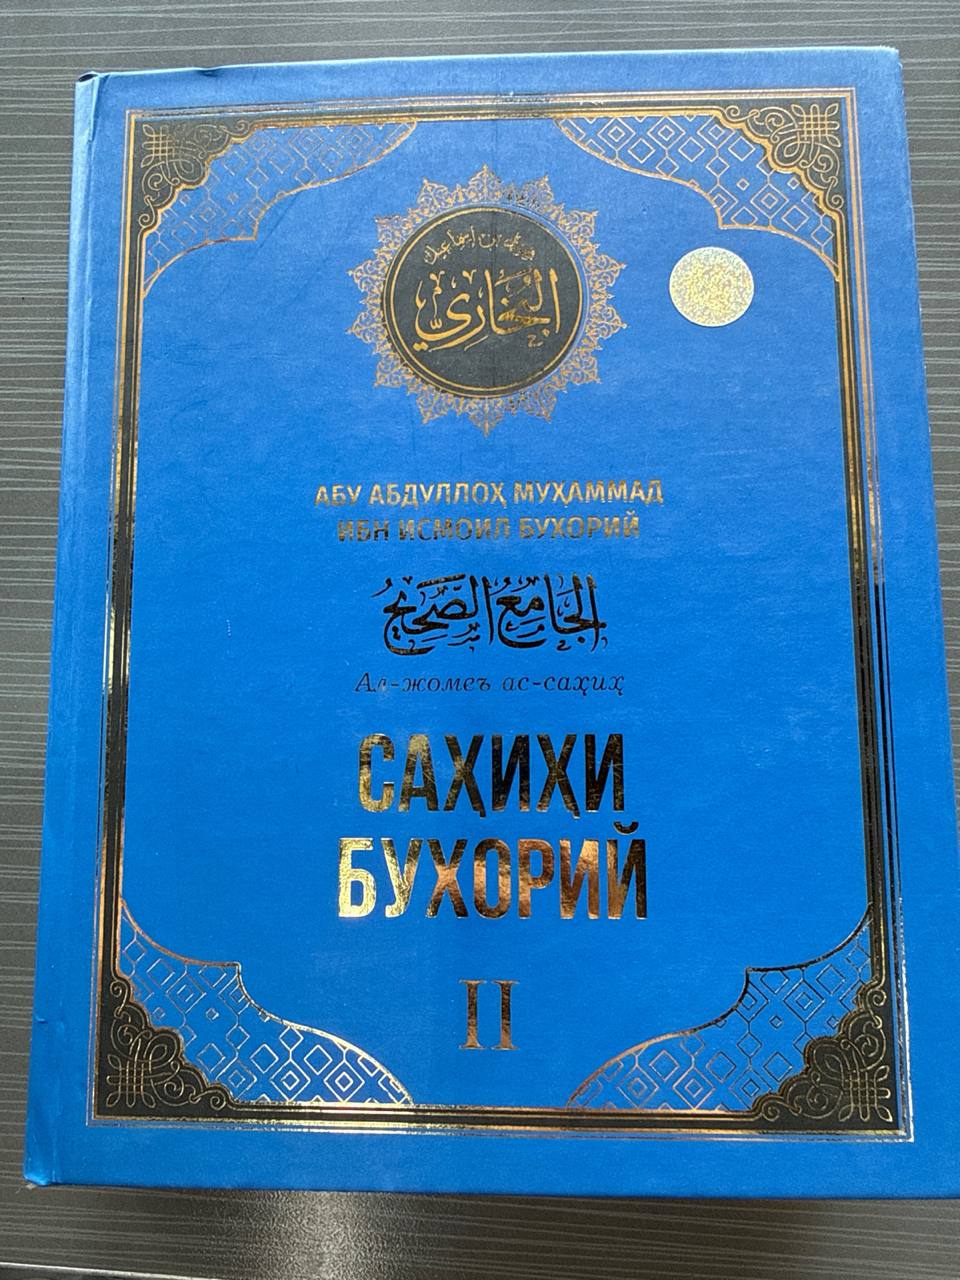 محمد بن إسماعيل
البُخَارِيّ
АБУ АБДУЛЛОҲ МУҲАММАД
ИБН ИСМОИЛ БУХОРИЙ
الجَامِعُ الصَّحِيحُ
Ал-жомеъ ас-саҳиҳ
САҲИҲИ
БУХОРИЙ
II